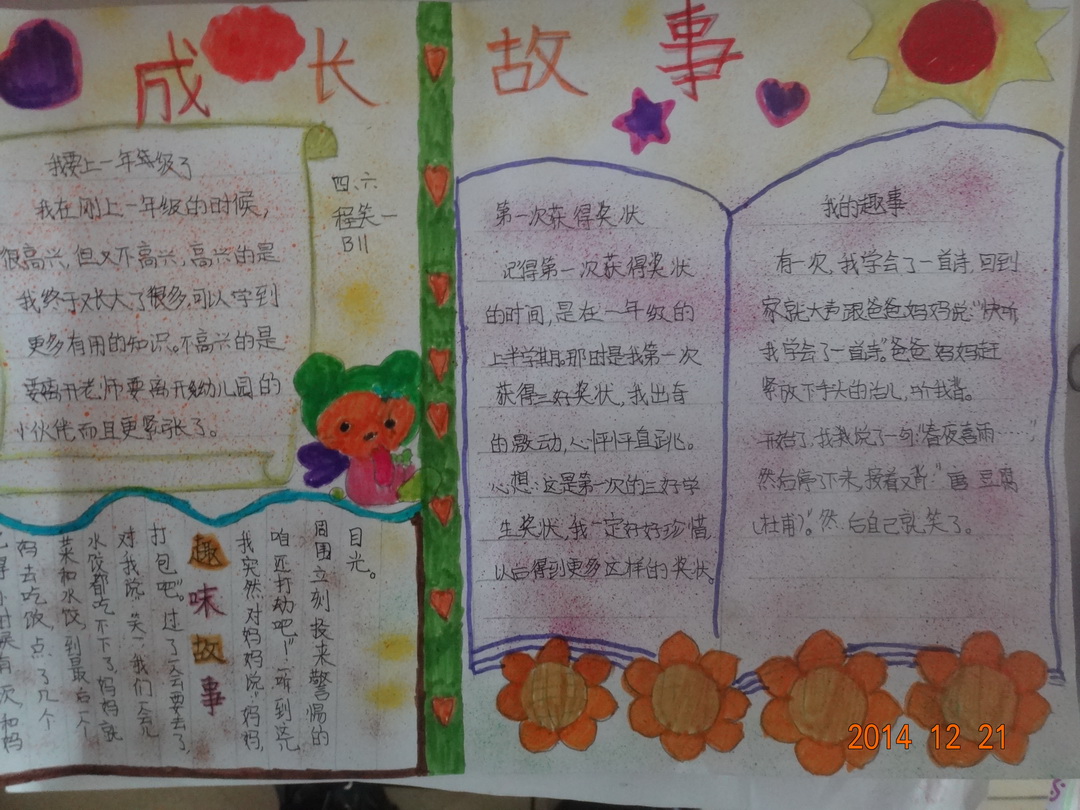 成长故事
我要上一年等级了
我在刚上一年级的时候，
很高兴，但又不高兴，高兴的是
我终于长大了很多，可以学到
更多有用的知识。不高兴的是
要离开老师要离开幼儿园的
小伙伴而且更紧张了。
四、六
程笑一
B11
第一次获得奖状
记得第一次获得奖状
的时间，是在一年级的
上半学期。那时是我第一次
获得三好奖状，我出奇
的激动，心怦怦直跳。
心想：这是第一次的三好学
生奖状，我一定好好珍惜，
以后得到更多这样的奖状。
我的趣事
有一次，我学会了一首诗，回到
家就大声跟爸爸妈妈说：“快听
我学会了一首诗。”爸爸妈妈赶
紧放下手头的活儿，听我背。
开始了，我说了一句：“春夜喜雨
然后停了下来，接着又背：“唐 豆腐
（杜甫）。”然后自己就笑了。
趣味故事
记得小时候有一次和妈
妈去吃饭，点了几个
菜和水饺，到最后一个
水饺都吃不下了，妈妈就
对我说“笑一，我们一会儿
打包吧”。过了一会要去了
我突然对妈妈说“妈妈，
咱还打劫吧！”一听到这儿
周围立刻投来警惕的
目光。
2014 12 21